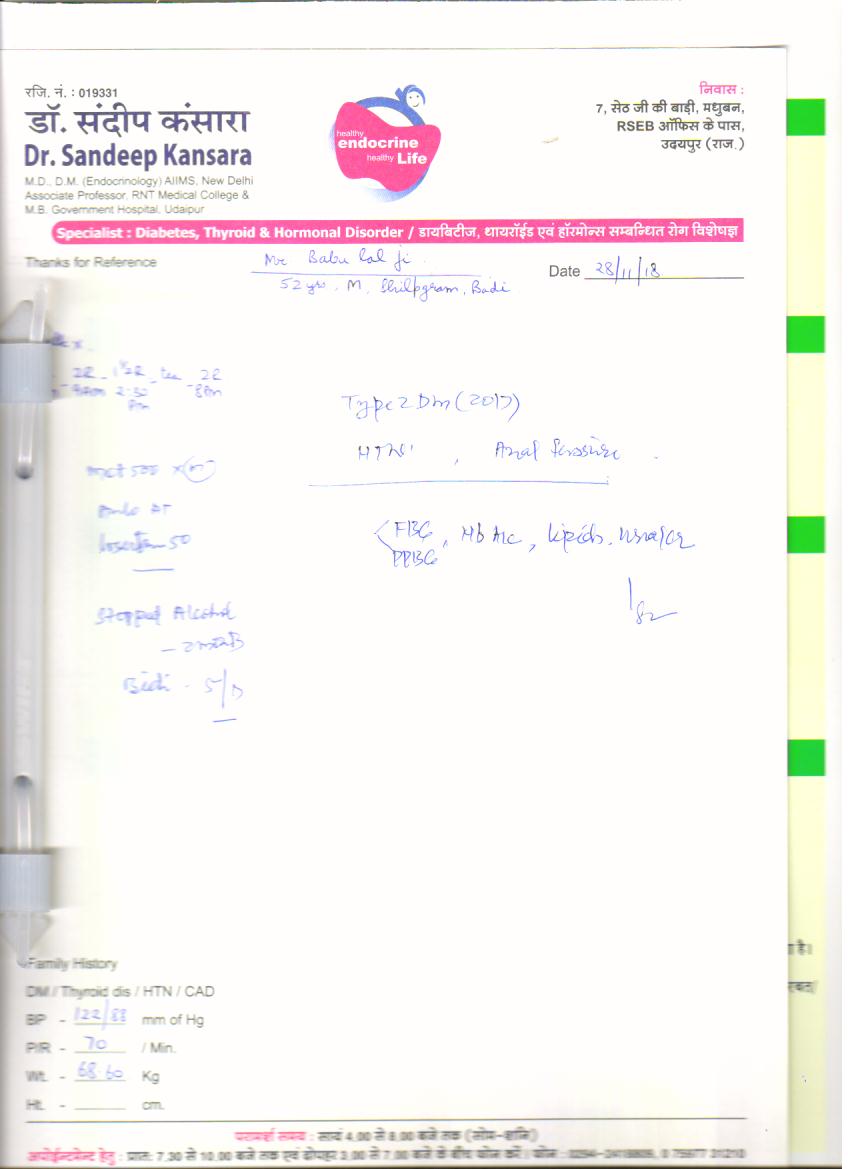 रजि. नं. : 019331
डॉ. संदीप कंसारा
Dr. Sandeep Kansara
M.D., D.M. (Endocrinology) AIIMS, New Delhi
Associate Professor, RNT Medical College &
M.B. Government Hospital, Udaipur
healthy
endocrine
healthy Life
निवास :
7, सेठ जी की बाड़ी, मधुबन,
RSEB ऑफिस के पास,
उदयपुर (राज.)
Specialist : Diabetes, Thyroid & Hormonal Disorder / डायबिटीज, थायरॉईड एवं हॉरमोन्स सम्बन्धित रोग विशेषज्ञ
Thanks for Reference
Mr Babu lal ji
Date 28/11/18
52 yrs, M, Shilpgram, Badi
2R - 1½R - tea - 2R
2-30 8pm
pm
Type 2 Dm (2017)
HTN, Anal fissure
met 500
Amlo AT
losartan 50
FBG, HbA1c, lipids,
PPBG
Stopped Alcohol
Bidi - 5/D
Family History
DM / Thyroid dis / HTN / CAD
BP - 122/88 mm of Hg
P/R - 70 / Min.
Wt. - 68.60 Kg
Ht. - cm.
परामर्श समय : सायं 4.00 से 8.00 बजे तक (सोम-शनि)
अपोईन्टमेन्ट हेतु : प्रातः 7.30 से 10.00 बजे तक एवं दोपहर 3.00 से 7.00 बजे के बीच फोन करें। फोन :